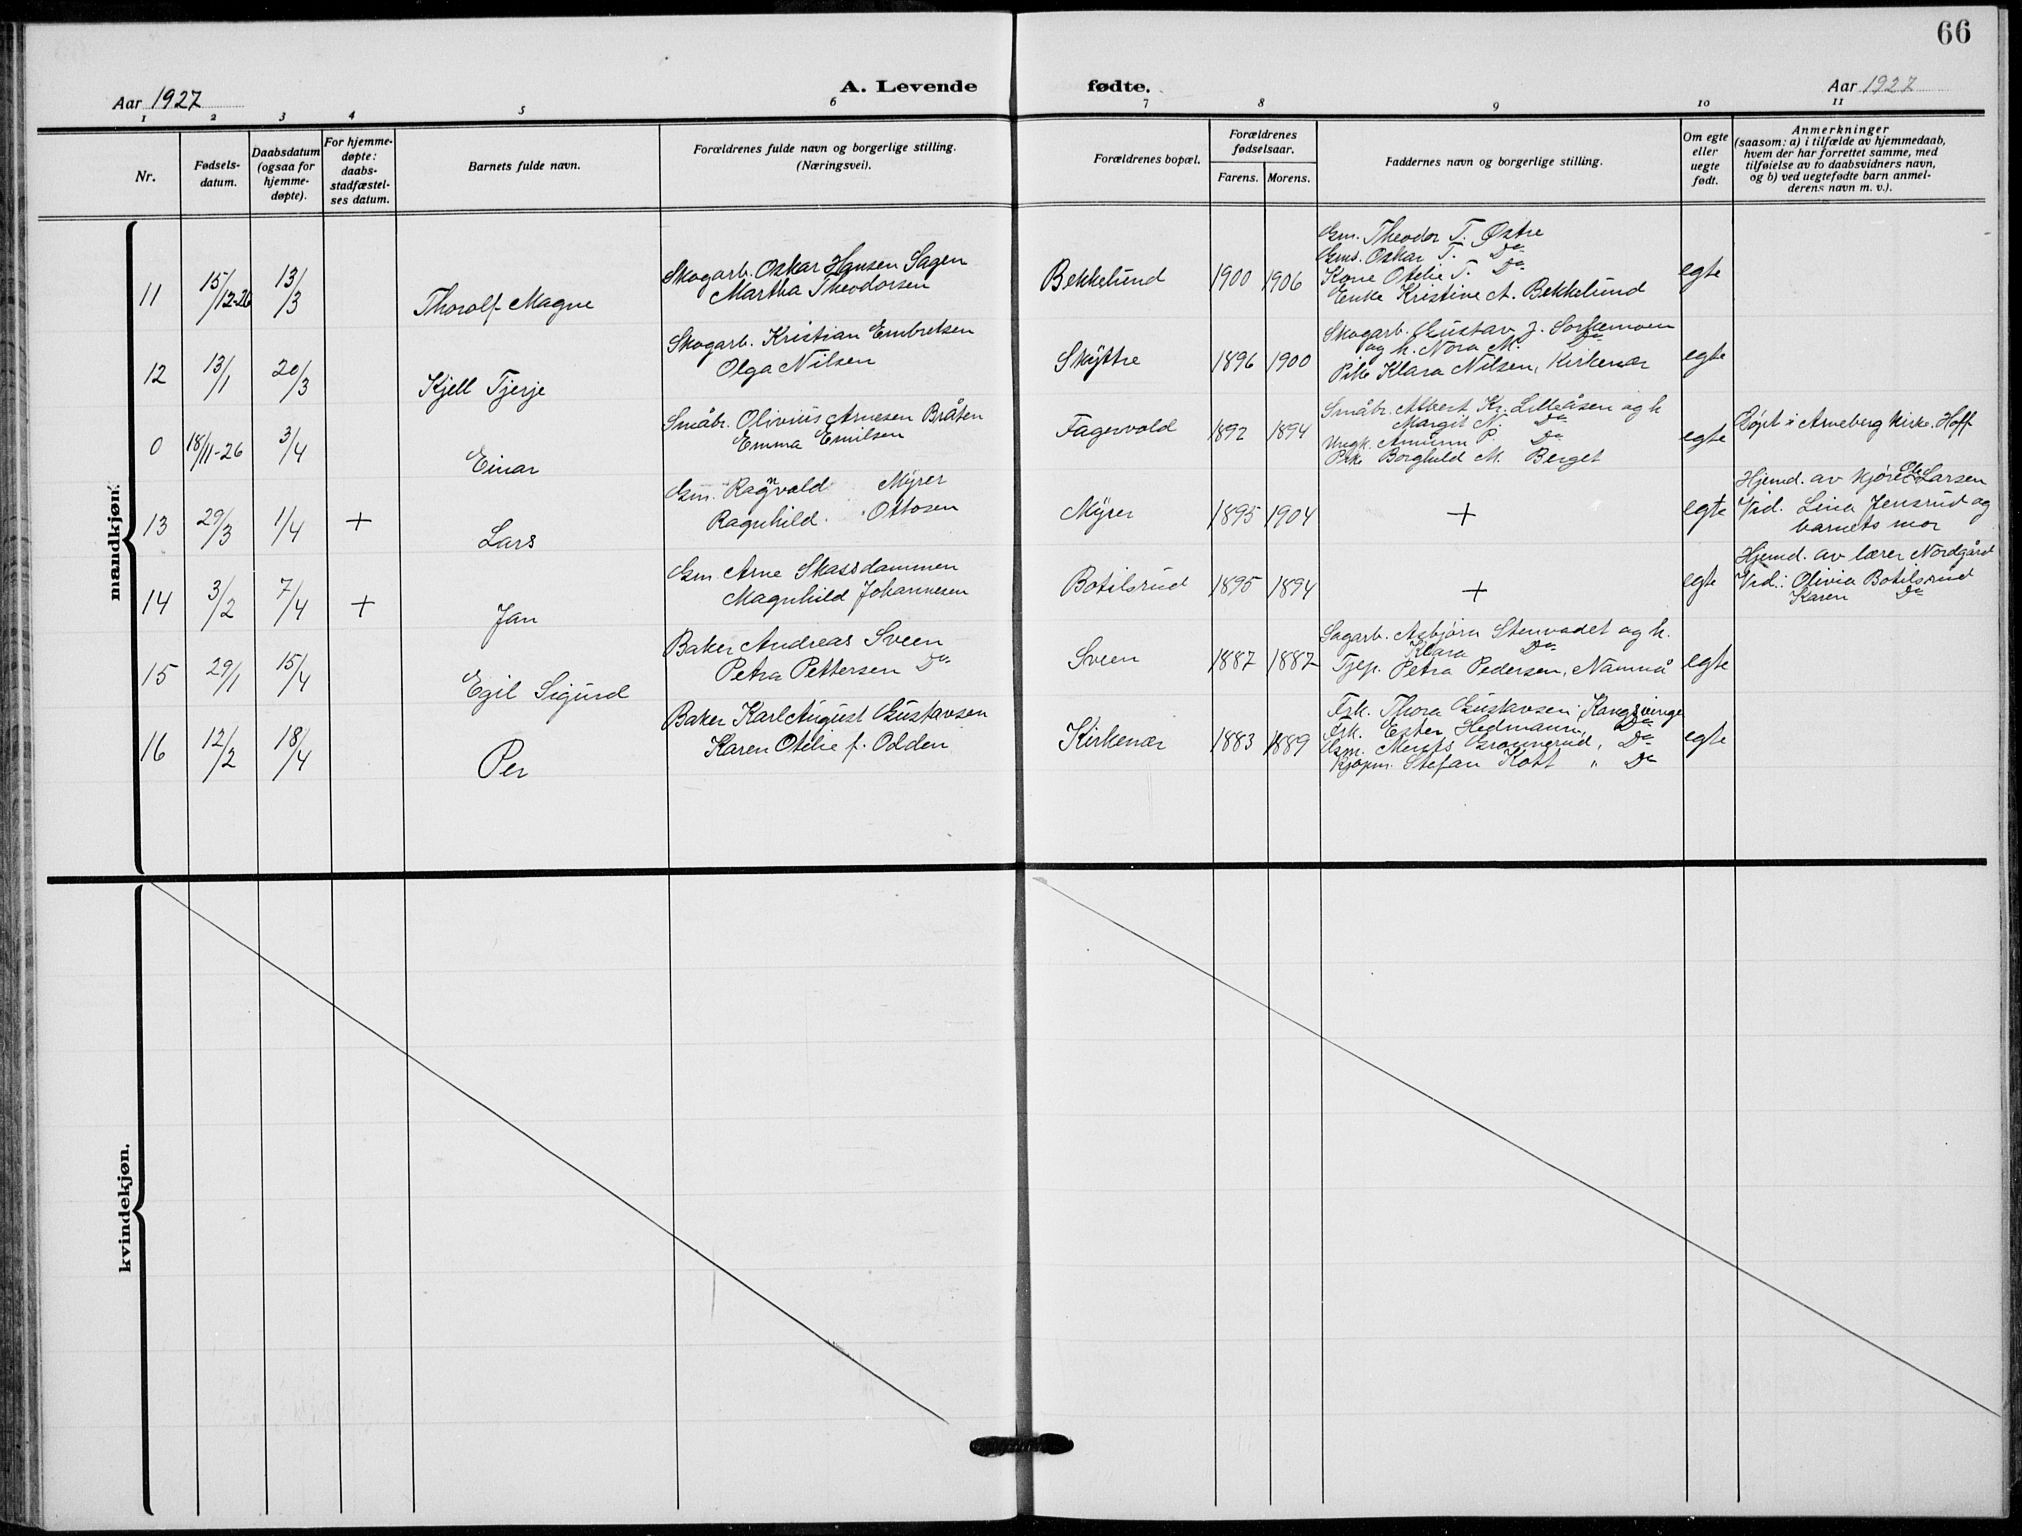 66
Aar 1927
A. Levende fødte.
Aar 1927
1 2 3 4 5 6 7 8 9 10 11
Nr.
Fødsels-
datum.
Daabsdatum
(ogsaa for
hjemme-
døpte).
For hjemme-
døpte:
daabs-
stadfæstel-
ses datum.
Barnets fulde navn.
Forældrenes fulde navn og borgerlige stilling.
(Næringsvei).
Forældrenes bopæl.
Forældrenes
fødselsaar.
Farens. Morens.
Faddernes navn og borgerlige stilling.
Om egte
eller
uegte
født.
Anmerkninger
(saasom: a) i tilfælde av hjemmedaab,
hvem der har forrettet samme, med
tilføielse av to daabsvidners navn,
og b) ved uegtefødte barn anmel-
derens navn m. v.).
mandkjøn.
11 15/12-26 13/3 Thorolf Magne
Skogarb. Oskar Hansen Sagen
Martha Theodorsen
Bekkelund 1900 1906
Gm. Theodor T. Østre
Gms. Oskar T. Do
Kone Otelie T. Do
Enke Kristine A. Bekkelund
egte
12 13/1 20/3 Kjell Tjerje
Skogarb. Kristian Embretsen
Olga Nilsen
Skyttre 1896 1900
Skogarb. Gustav J. Sorkemoen
og h. Nora M. Do
Pike Klara Nilsen, Kirkenær
egte
0 18/11-26 3/4 Einar
Småbr. Olivius Arnesen Bråten
Emma Emilsen
Fagervold 1892 1894
Småbr. Albert Kr. Lilleåsen og h
Margit N. Do
Ungk. Amunn P. Do
Pike Borghild M. Berget
egte
Døpt i Arneberg Kirke, Hoff
13 29/3 1/4 + Lars
Gm. Ragnvald Myrer
Ragnhild Ottosen
Myrer 1895 1904
+
egte
Hjemd. av Ole Larsen
Vid. Lina Jensrud og
barnets mor
14 3/2 7/4 + Jan
Gm. Arne Skassdammen
Magnhild Johannesen
Botilsrud 1895 1894
+
egte
Hjemd. av lærer Nordgård
Vid.: Olivia Botilsrud
Karen Do
15 29/1 15/4 Egil Sigurd
Baker Andreas Sveen
Petra Pettersen Do
Sveen 1887 1887
Sagarb. Asbjørn Stenvadet og h.
Klara Do
Tjep. Petra Pedersen, Namnå
egte
16 12/2 18/4 Per
Baker Karl August Gustavsen
Karen Otelie f. Odden
Kirkenær 1883 1889
Frk. Thora Gustavsen, Kongsvinge
Frk. Ester Hedmann, Do
Gm. Grønnerud, Do
Kjøpm. Stefan Kott " Do
egte
kvindekjøn.